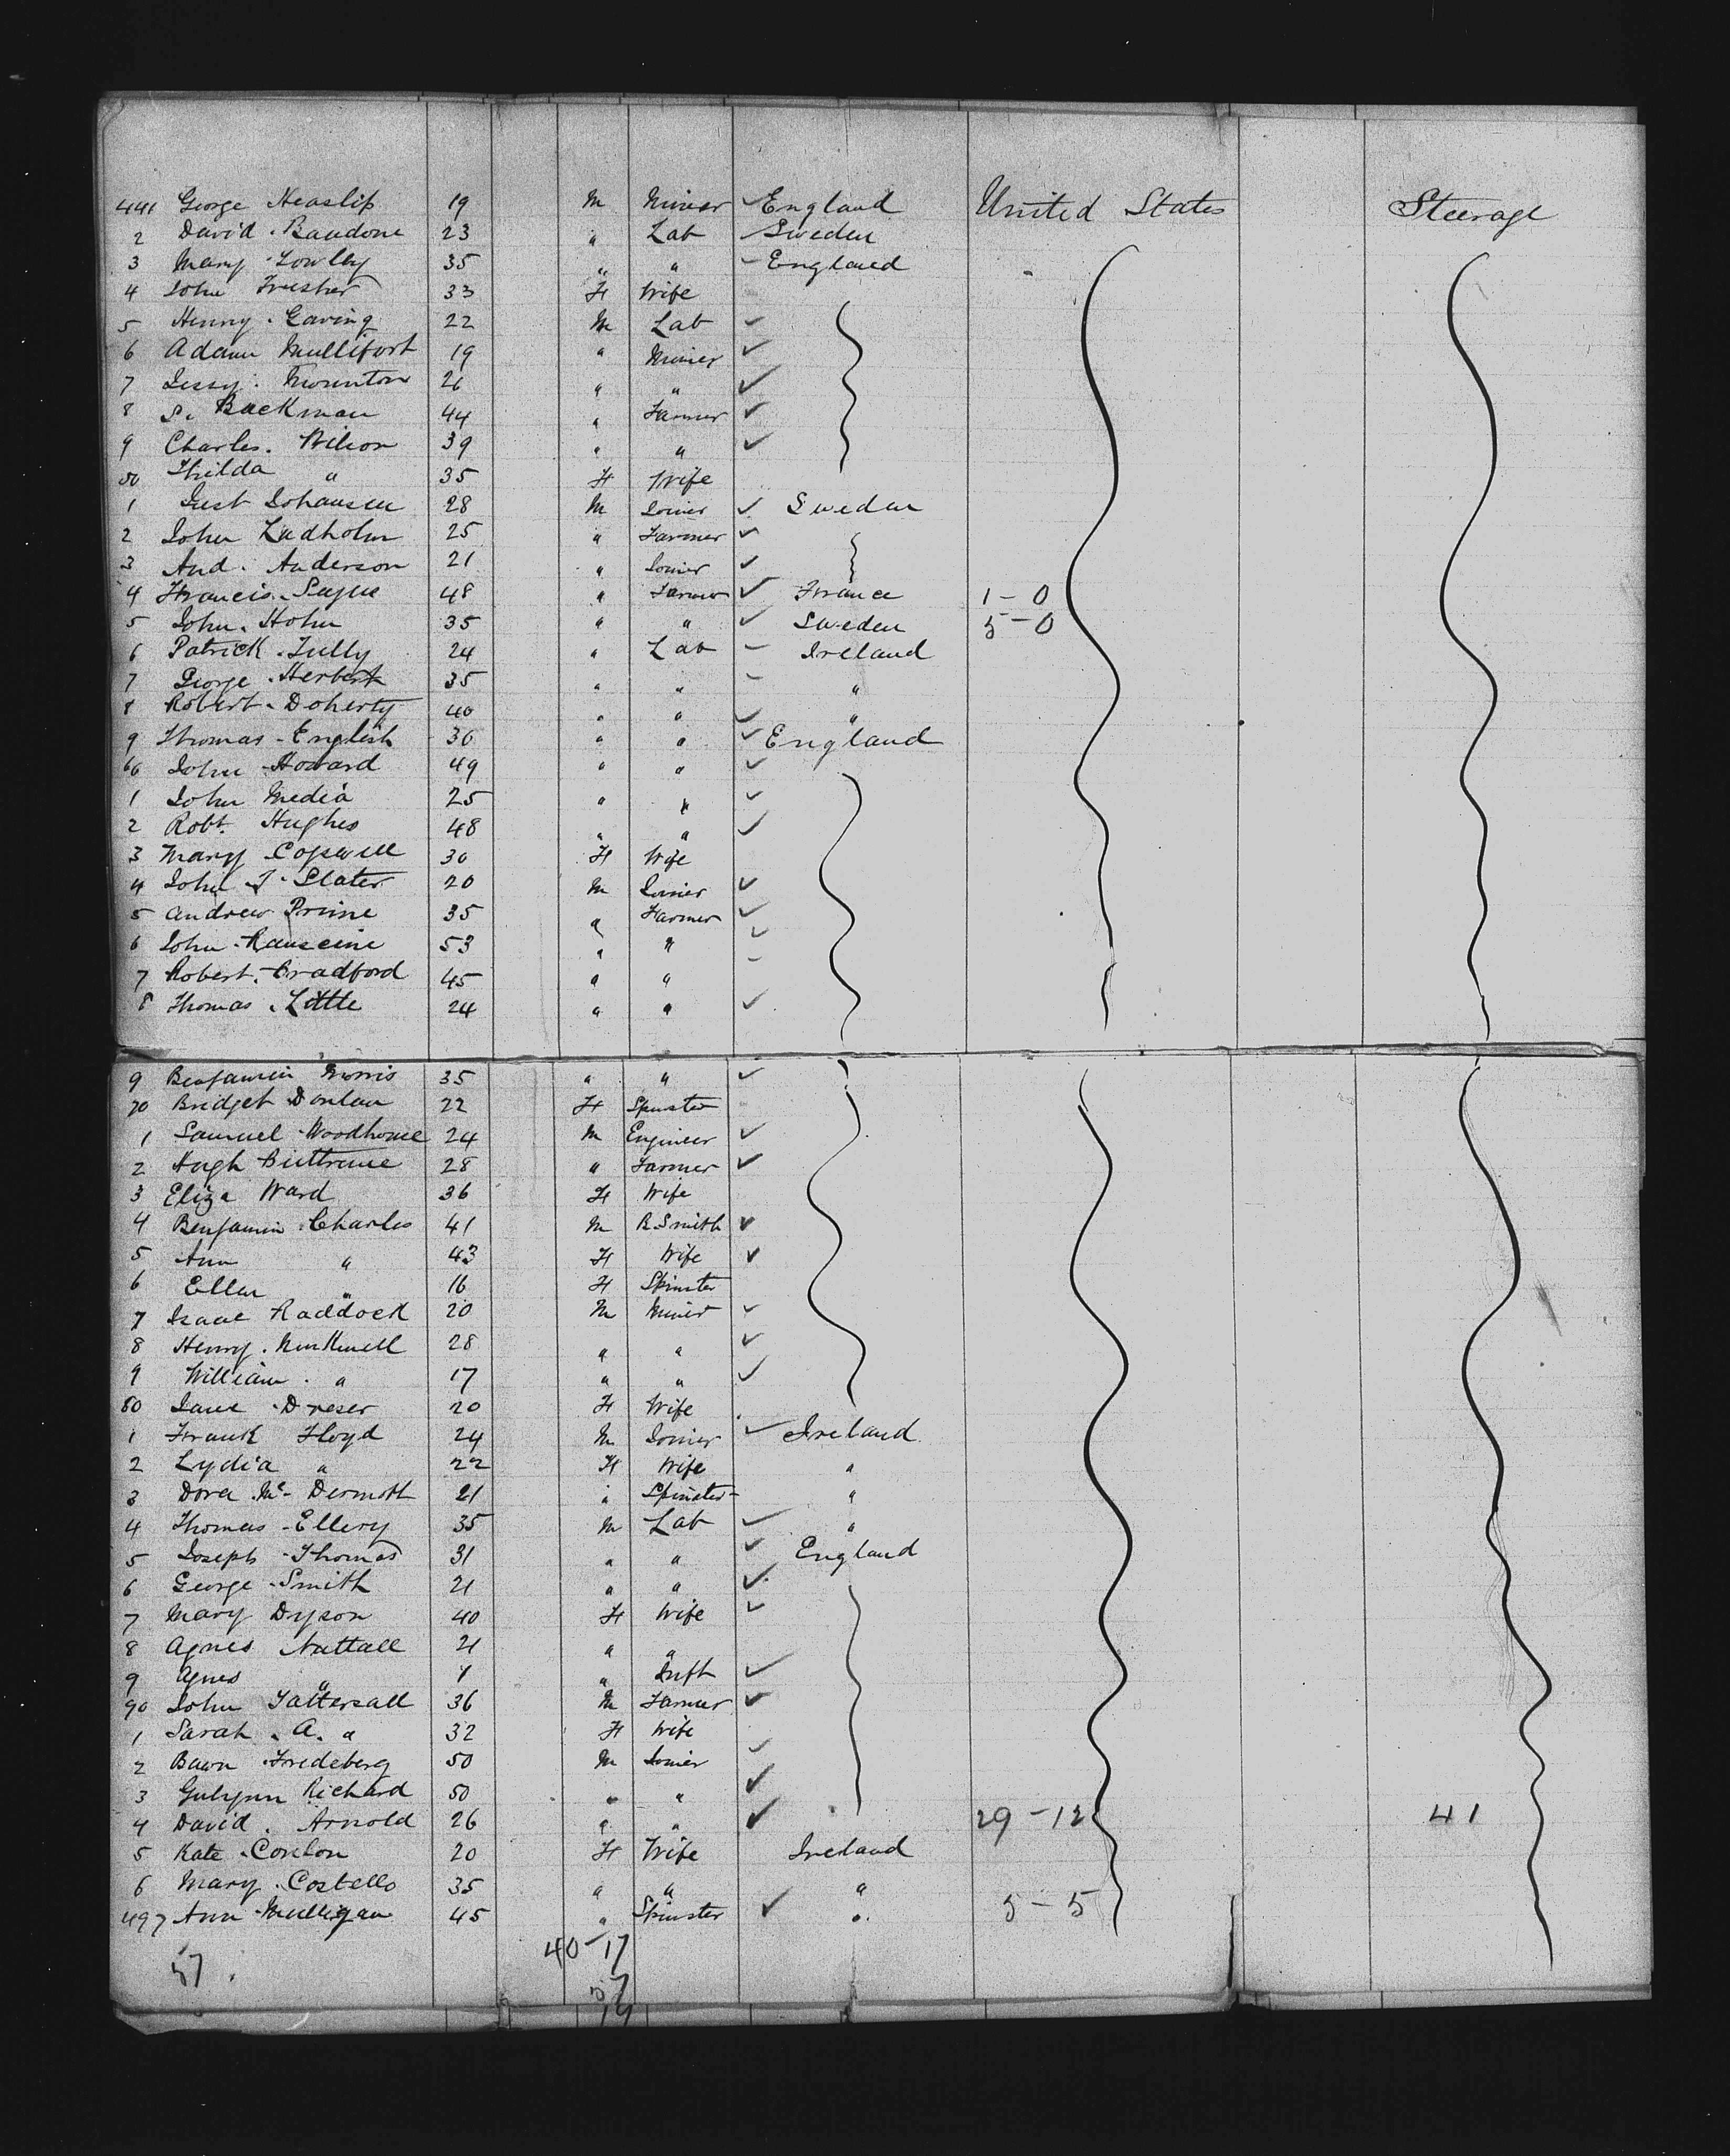 441 George Heaslip 19 M Miner ✓ England United States Steerage
2 David Baudone 23 " Lab Sweden
3 Mary Lowley 35 " " England
4 John Frusher 33 F Wife
5 Henry Gaving 22 M Lab ✓
6 Adam Mullifort 19 " Miner ✓
7 Jessy Mounton 26 " " ✓
8 S. Backman 44 " Farmer ✓
9 Charles Wilson 39 " " ✓
50 Thilda " 35 F Wife
1 Gust Johansen 28 M Joiner ✓ Sweden
2 John Ladholm 25 " Farmer ✓
3 And. Anderson 21 " Joiner ✓
4 Francis 48 " Farmer ✓ France 1-0
5 John Holm 35 " " ✓ Sweden 5-0
6 Patrick Tully 24 " Lab Ireland
7 George Herbert 35 " " "
8 Robert Doherty 40 " " ✓ "
9 Thomas English 30 " " ✓ England
60 John Howard 49 " " ✓
1 John Media 25 " " ✓
2 Robt. Hughes 48 " " ✓
3 Mary Copswell 30 F Wife
4 John T. Slater 20 M Joiner ✓
5 Andrew Prime 35 " Farmer ✓
6 John 53 " " ✓
7 Robert Bradford 45 " "
8 Thomas Little 24 " " ✓
9 Benjamin Morris 35 " " ✓
70 Bridget Donlan 22 F Spinster
1 Samuel Woodhouse 24 M Engineer ✓
2 Hugh 28 " Farmer ✓
3 Eliza Ward 36 F Wife
4 Benjamin Charles 41 M B Smith ✓
5 Ann " 43 F Wife ✓
6 Ellen " 16 F Spinster
7 Isaac Raddock 20 M Miner ✓
8 Henry 28 " " ✓
9 William " 17 " " ✓
80 Jane Dreser 20 F Wife
1 Frank Floyd 24 M Joiner ✓ Ireland
2 Lydia " 22 F Wife "
3 Dora Mc Dermott 21 " Spinster "
4 Thomas Ellery 35 M Lab ✓ "
5 Joseph Thomas 31 " " ✓ England
6 George Smith 21 " " ✓
7 Mary Dyson 40 F Wife ✓
8 Agnes Nuttall 21 " "
9 Agnes " 1 " Inft ✓
90 John Tattersall 36 M Farmer ✓
1 Sarah A. " 32 F Wife
2 Bawn Fredeberg 50 M Joiner ✓
3 Gulynn Richard 50 " " ✓
4 David Arnold 26 " " ✓ 29-12 41
5 Kate Conlon 20 F Wife Ireland
6 Mary Costello 35 " " "
497 Ann Mulligan 45 " Spinster ✓ " 5-5
40-17
57
57